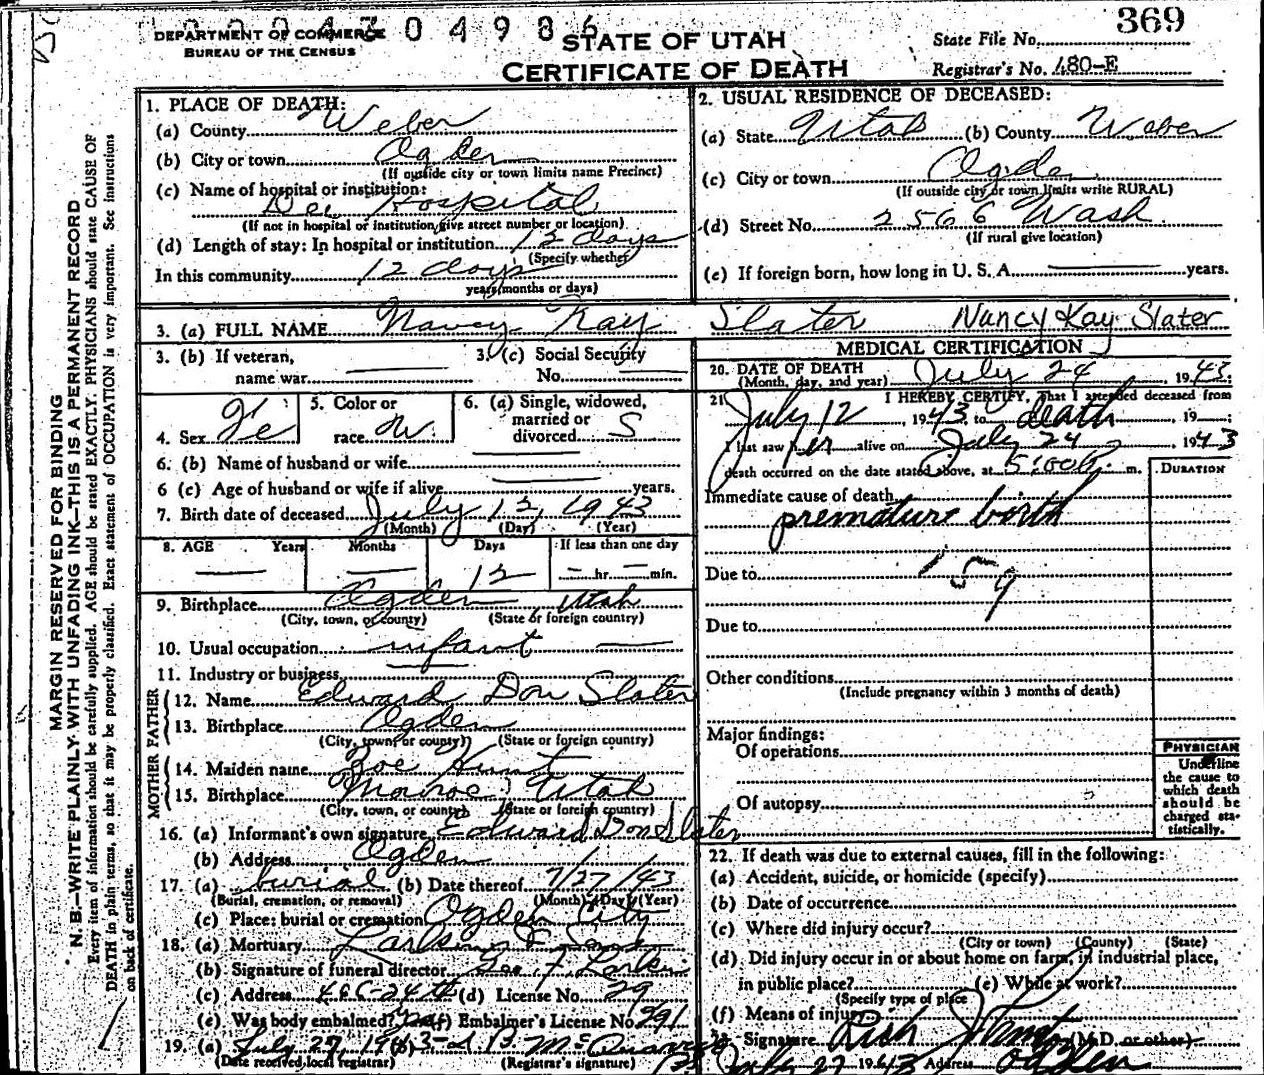 0004304986
DEPARTMENT OF COMMERCE
BUREAU OF THE CENSUS
STATE OF UTAH
CERTIFICATE OF DEATH
369
State File No.
Registrar's No. 480-E
MARGIN RESERVED FOR BINDING
N. B.—WRITE PLAINLY WITH UNFADING INK—THIS IS A PERMANENT RECORD
Every item of information should be carefully supplied. AGE should be stated EXACTLY. PHYSICIANS should state CAUSE OF
DEATH in plain terms, so that it may be properly classified. Exact statement of OCCUPATION is very important. See instructions
on back of certificate.
1. PLACE OF DEATH:
(a) County Weber
(b) City or town Ogden
(If outside city or town limits name Precinct)
(c) Name of hospital or institution:
Dee Hospital
(If not in hospital or institution, give street number or location)
(d) Length of stay: In hospital or institution 12 days
(Specify whether
In this community 12 days
years, months or days)
2. USUAL RESIDENCE OF DECEASED:
(a) State Utah (b) County Weber
(c) City or town Ogden
(If outside city or town limits write RURAL)
(d) Street No. 2566 Wash
(If rural give location)
(e) If foreign born, how long in U. S. A. years.
3. (a) FULL NAME Nancy Kay Slater Nancy Kay Slater
3. (b) If veteran,
name war
3. (c) Social Security
No.
4. Sex Fe
5. Color or
race W.
6. (a) Single, widowed,
married or
divorced S
6. (b) Name of husband or wife
6 (c) Age of husband or wife if alive years.
7. Birth date of deceased July 12, 1943
(Month) (Day) (Year)
8. AGE Years Months Days If less than one day
12 hr. min.
9. Birthplace Ogden Utah
(City, town, or county) (State or foreign country)
10. Usual occupation infant
11. Industry or business
FATHER
12. Name Edward Don Slater
13. Birthplace Ogden
(City, town or county) (State or foreign country)
MOTHER
14. Maiden name Zoe Hunt
15. Birthplace Monroe Utah
(City, town, or county) (State or foreign country)
16. (a) Informant's own signature Edward Don Slater
(b) Address Ogden
17. (a) burial (b) Date thereof 7/27/43
(Burial, cremation, or removal) (Month) (Day) (Year)
(c) Place: burial or cremation Ogden City
18. (a) Mortuary Larkin & Sons
(b) Signature of funeral director Geo F Larkin
(c) Address 466-24th (d) License No. 29
(e) Was body embalmed? yes (f) Embalmer's License No. 291
19. (a) July 27, 1943 (b)
(Date received local registrar) (Registrar's signature)
MEDICAL CERTIFICATION
20. DATE OF DEATH
(Month, day, and year) July 24, 1943
21. I HEREBY CERTIFY, That I attended deceased from
July 12, 1943 to death, 19
I last saw her alive on July 24, 1943
death occurred on the date stated above, at 5:00 P. m.
DURATION
Immediate cause of death
premature birth
Due to 159
Due to
Other conditions
(Include pregnancy within 3 months of death)
Major findings:
Of operations
Of autopsy
PHYSICIAN
Underline
the cause to
which death
should be
charged sta-
tistically.
22. If death was due to external causes, fill in the following:
(a) Accident, suicide, or homicide (specify)
(b) Date of occurrence
(c) Where did injury occur?
(City or town) (County) (State)
(d) Did injury occur in or about home on farm, in industrial place,
in public place? (e) While at work?
(Specify type of place
(f) Means of injury
23. Signature Rich (M.D. or other)
July 27 1943 Address Ogden